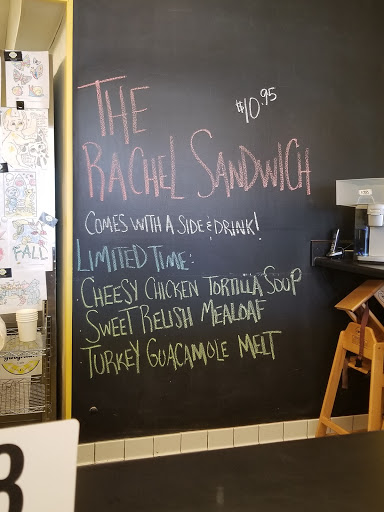 THE
$10.95
RACHEL SANDWICH
COMES WITH A SIDE & DRINK!
LIMITED TIME:
CHEESY CHICKEN TORTILLA SOUP
· SWEET RELISH MEALOAF
· TURKEY GUACAMOLE MELT
FALL
3